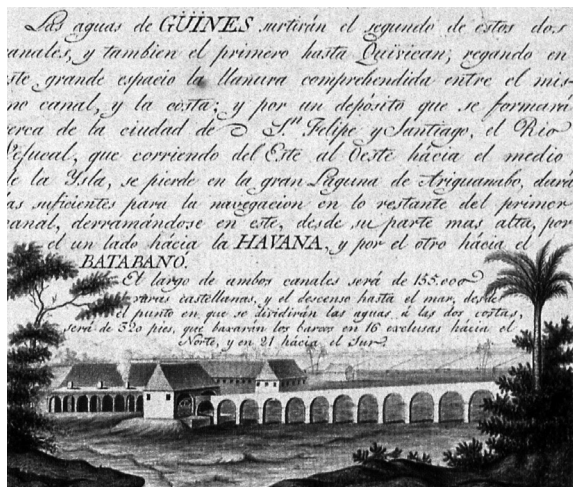 Las aguas de GÜINES surtirán el segundo de estos dos
canales, y tambien el primero hasta Quivican; regando en
ste grande espacio la llanura comprehendida entre el mis-
mo canal, y la costa; y por un depósito que se formará
cerca de la ciudad de S.n Felipe y Santiago, el Rio
Bejucal, que corriendo del Este al Oeste hácia el medio
de la Ysla, se pierde en la gran Laguna de Ariguanabo, dará
las suficientes para la navegacion en lo restante del primer
canal, derramándose en este, desde su parte mas alta, por
el un lado hácia la HAVANA, y por el otro hácia el
BATABANÓ.
El largo de ambos canales será de 155.000
varas castellanas, y el descenso hasta el mar, desde
el punto en que se dividirán las aguas á las dos costas,
será de 320 pies, que baxarán los barcos en 16 exclusas hácia el
Norte, y en 21 hácia el Sur.